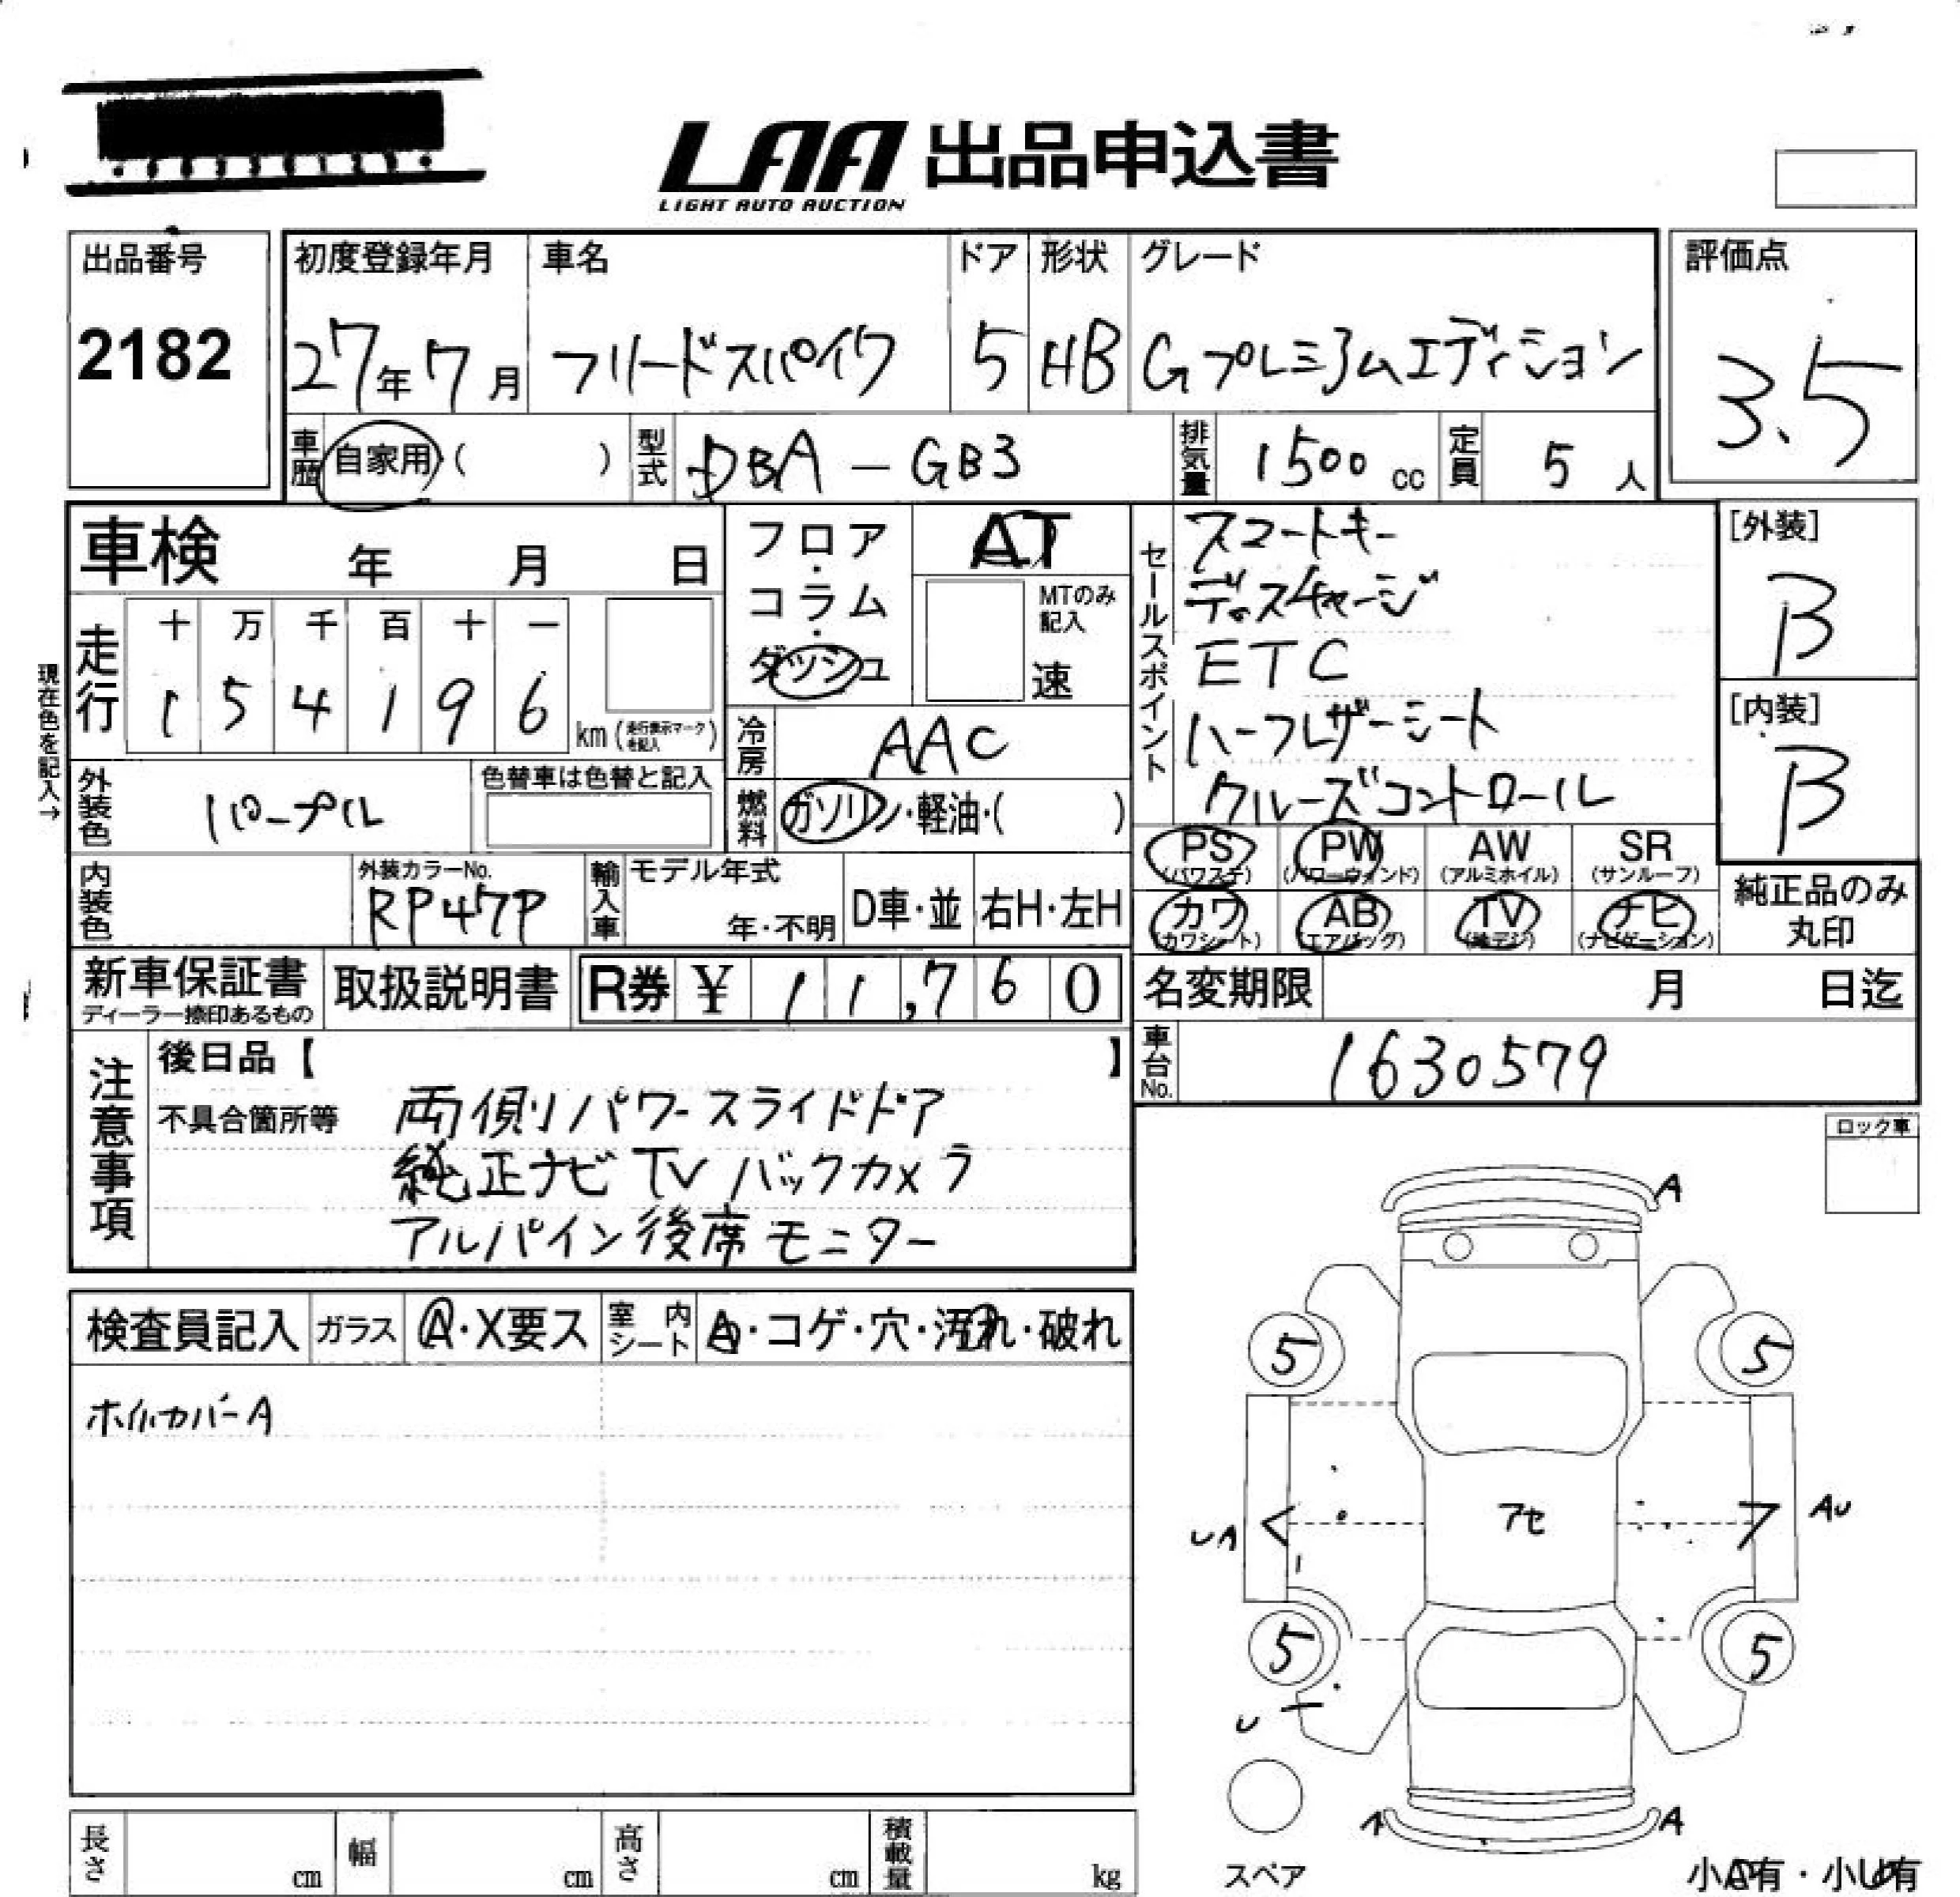 LAA 出品申込書
LIGHT AUTO AUCTION
出品番号
2182
初度登録年月
27年7月
車名
フリードスパイク
ドア
5
形状
HB
グレード
Gプレミアムエディション
評価点
3.5
車歴 自家用 ( )
型式 DBA-GB3
排気量 1500cc
定員 5人
車検 年 月 日
フロア・コラム・ダッシュ
AT
MTのみ記入
速
セールスポイント
スマートキー
ディスチャージ
ETC
ハーフレザーシート
クルーズコントロール
[外装]
B
[内装]
B
現在色を記入→
走行
十 万 千 百 十 一
1 5 4 1 9 6 km (走行表示マークを記入)
冷房 AAC
外装色 パープル
色替車は色替と記入
燃料 ガソリン・軽油・( )
PS (パワステ)
PW (パワーウィンド)
AW (アルミホイル)
SR (サンルーフ)
カワ (カワシート)
AB (エアバッグ)
TV (地デジ)
ナビ (ナビゲーション)
純正品のみ丸印
内装色
外装カラーNo.
RP47P
輸入車
モデル年式
年・不明
D車・並
右H・左H
新車保証書
ディーラー捺印あるもの
取扱説明書
R券 ¥ 11,760
名変期限 月 日迄
車台No. 1630579
注意事項
後日品【 】
不具合箇所等
両側パワースライドドア
純正ナビ TV バックカメラ
アルパイン後席モニター
ロック車
検査員記入
ガラス A・X要ス
室内シート
・コゲ・穴・汚れ・破れ
ホイルカバーA
A
5
5
アセ
UA
AU
5
5
U
A
A
スペア
小A有・小U有
長さ cm
幅 cm
高さ cm
積載量 kg